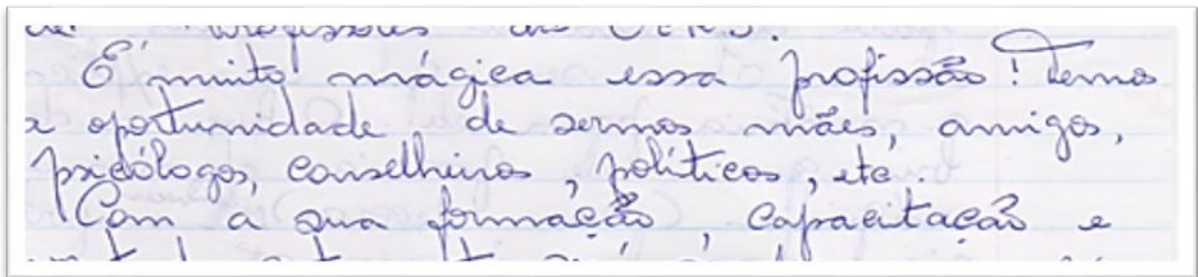 professores da UERJ.
É muito mágica essa profissão! Temos
a oportunidade de sermos mães, amigos,
psicólogos, conselheiros, políticos, etc.
Com a sua formação, capacitação e